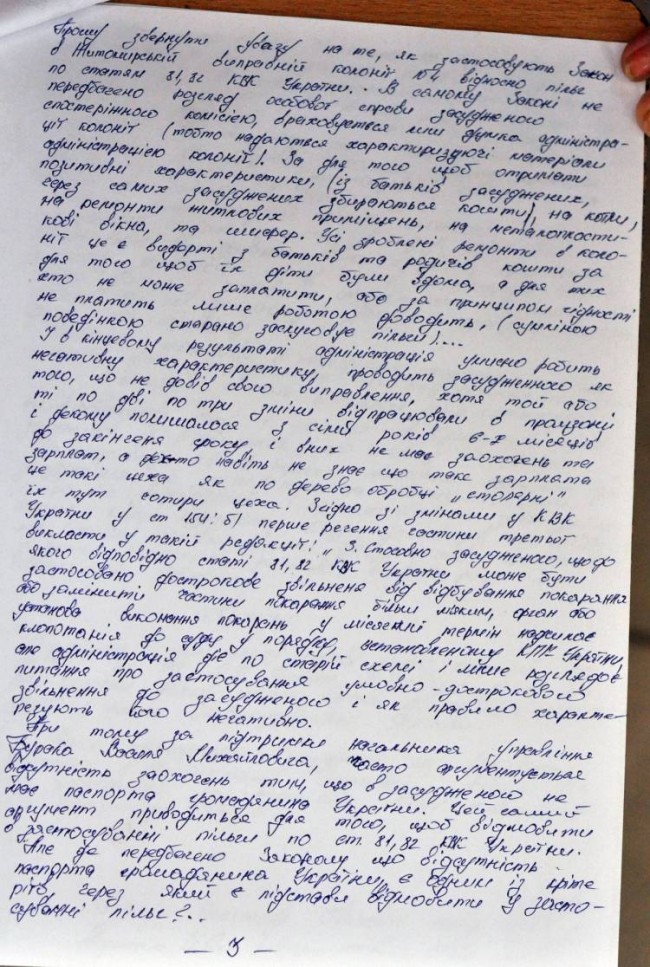 Прошу звернути увагу на те, як застосовують Закон
в Житомирській виправній колонії 104 відносно пільг
по статям 81, 82 ККК України. В самому Законі не
передбачено розгляд особової справи засудженого
спостережною комісією, враховується лиш думка адміністра-
ції колонії (тобто надаються характеризуючі матеріали
адміністрацією колонії). За для того щоб отримати
позитивні характеристики, (із батьків засуджених,
через самих засуджених збираються кошти), на котли,
на ремонти житлових приміщень, на металопласти-
кові вікна, та шифер. Усі зроблені ремонти в коло-
нії це є видерті з батьків та родичів кошти за
для того щоб їх діти були вдома, а для тих
хто не може заплатити, або за принципом гідності
не платить лише роботою доводить, (сумлінною
поведінкою старано заслуговує пільги)....
У в кінцевому результаті адміністрація умисно робить
негативну характеристику, проводить засудженного як
того, що не довів свого виправлення, хотя той або
ті по дві по три зміни відпрацювали в промзоні
і декому полишалося з сіми років 6-7 місяців
до закінченя строку і в них не має заохогень та
зарплат, а дехто навіть не знає що таке зарплата
це такі цеха як по дерево обробці „столярні“
їх тут сотири цеха. Згідно зі змінами у КВК
України у ст 154: 5) перше речення частини третьої
викласти у такій редакції: „ 3. Стосовно засудженого, щодо
якого відповідно статі 81, 82 КК України може бути
застосовано дострокове звільненя від відбування покарання
або замінити частини покарання більш мяким, орган або
установа виконання покарань у місячний термін надсилає
клопотання до суду у порядку, встановленному КПК України,
але адміністрація діє по старій схемі і лише розглядає
питання про застосування умовно-дострокового
звільнення до засудженого і як правило характе-
ризують його негативно.
При тому за підтримки начальника управління
Бурака Василя Михайловича, часто аргументується
відсутність заохогень тим, що в засудженого не
має паспорта громадянина України. Цей самий
аргумент приводиться для того, щоб відмовити
в застосуванні пільги по ст. 81, 82 КК України.
Але де передбачено Законому що відсутність
паспорта громадянина України, є одним із кріте
ріїв через який є підстави відмовити у засто-
суванні пільг?..
— 3 —